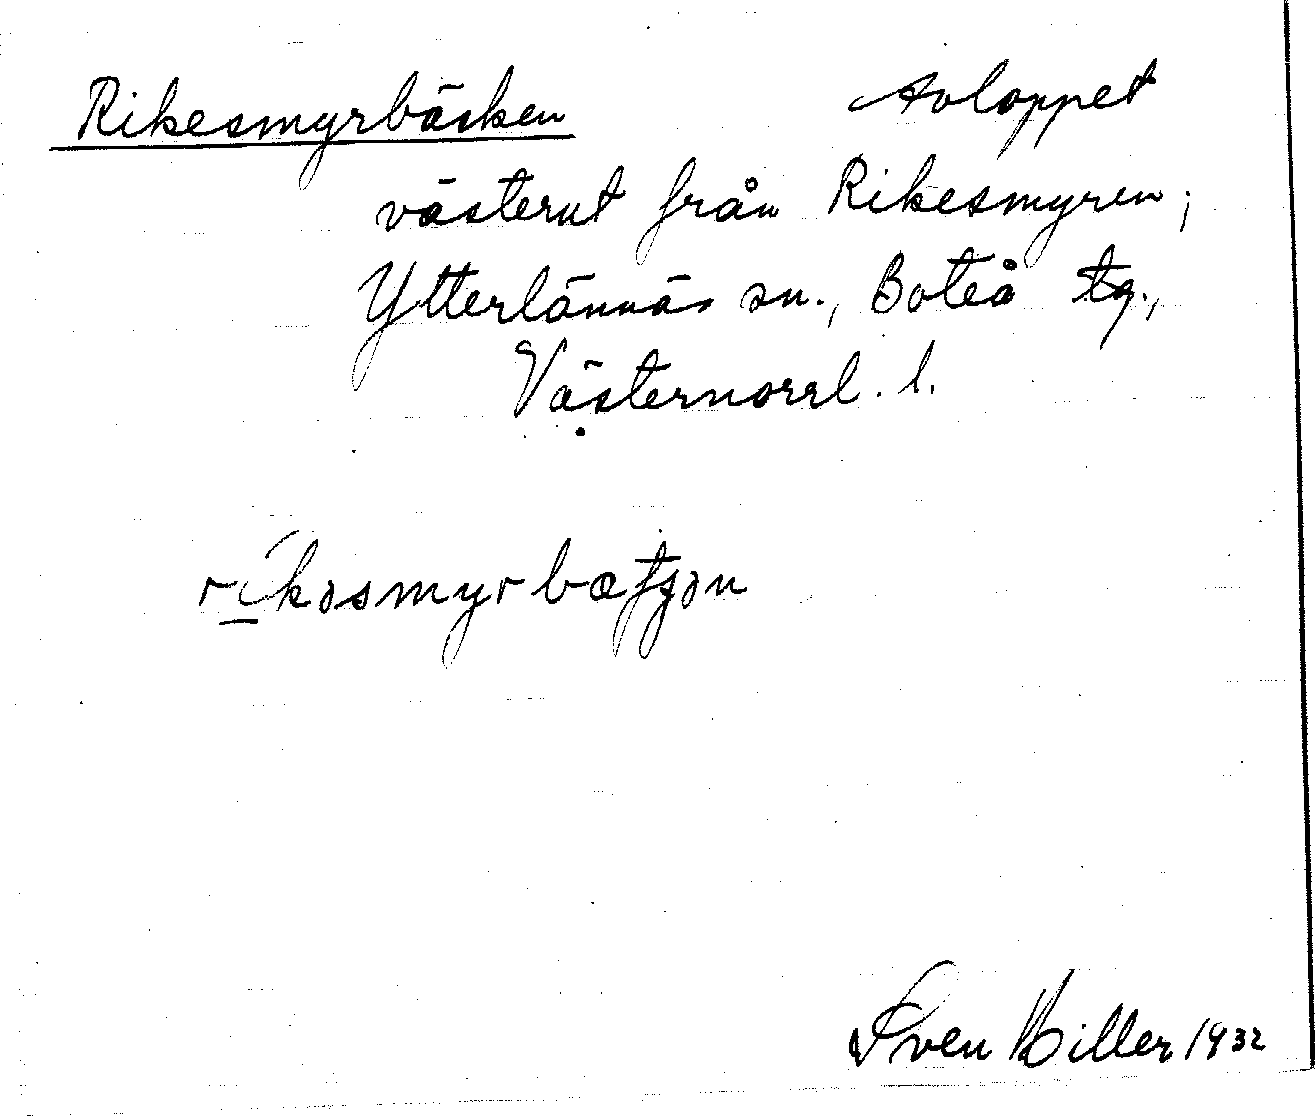 Rikesmyrbäcken Avloppet
västerut från Rikesmyren;
Ytterlännäs sn., Boteå tg.,
Västernorrl. l.
rikəsmyrbætʃən
Sven Hiller 1932